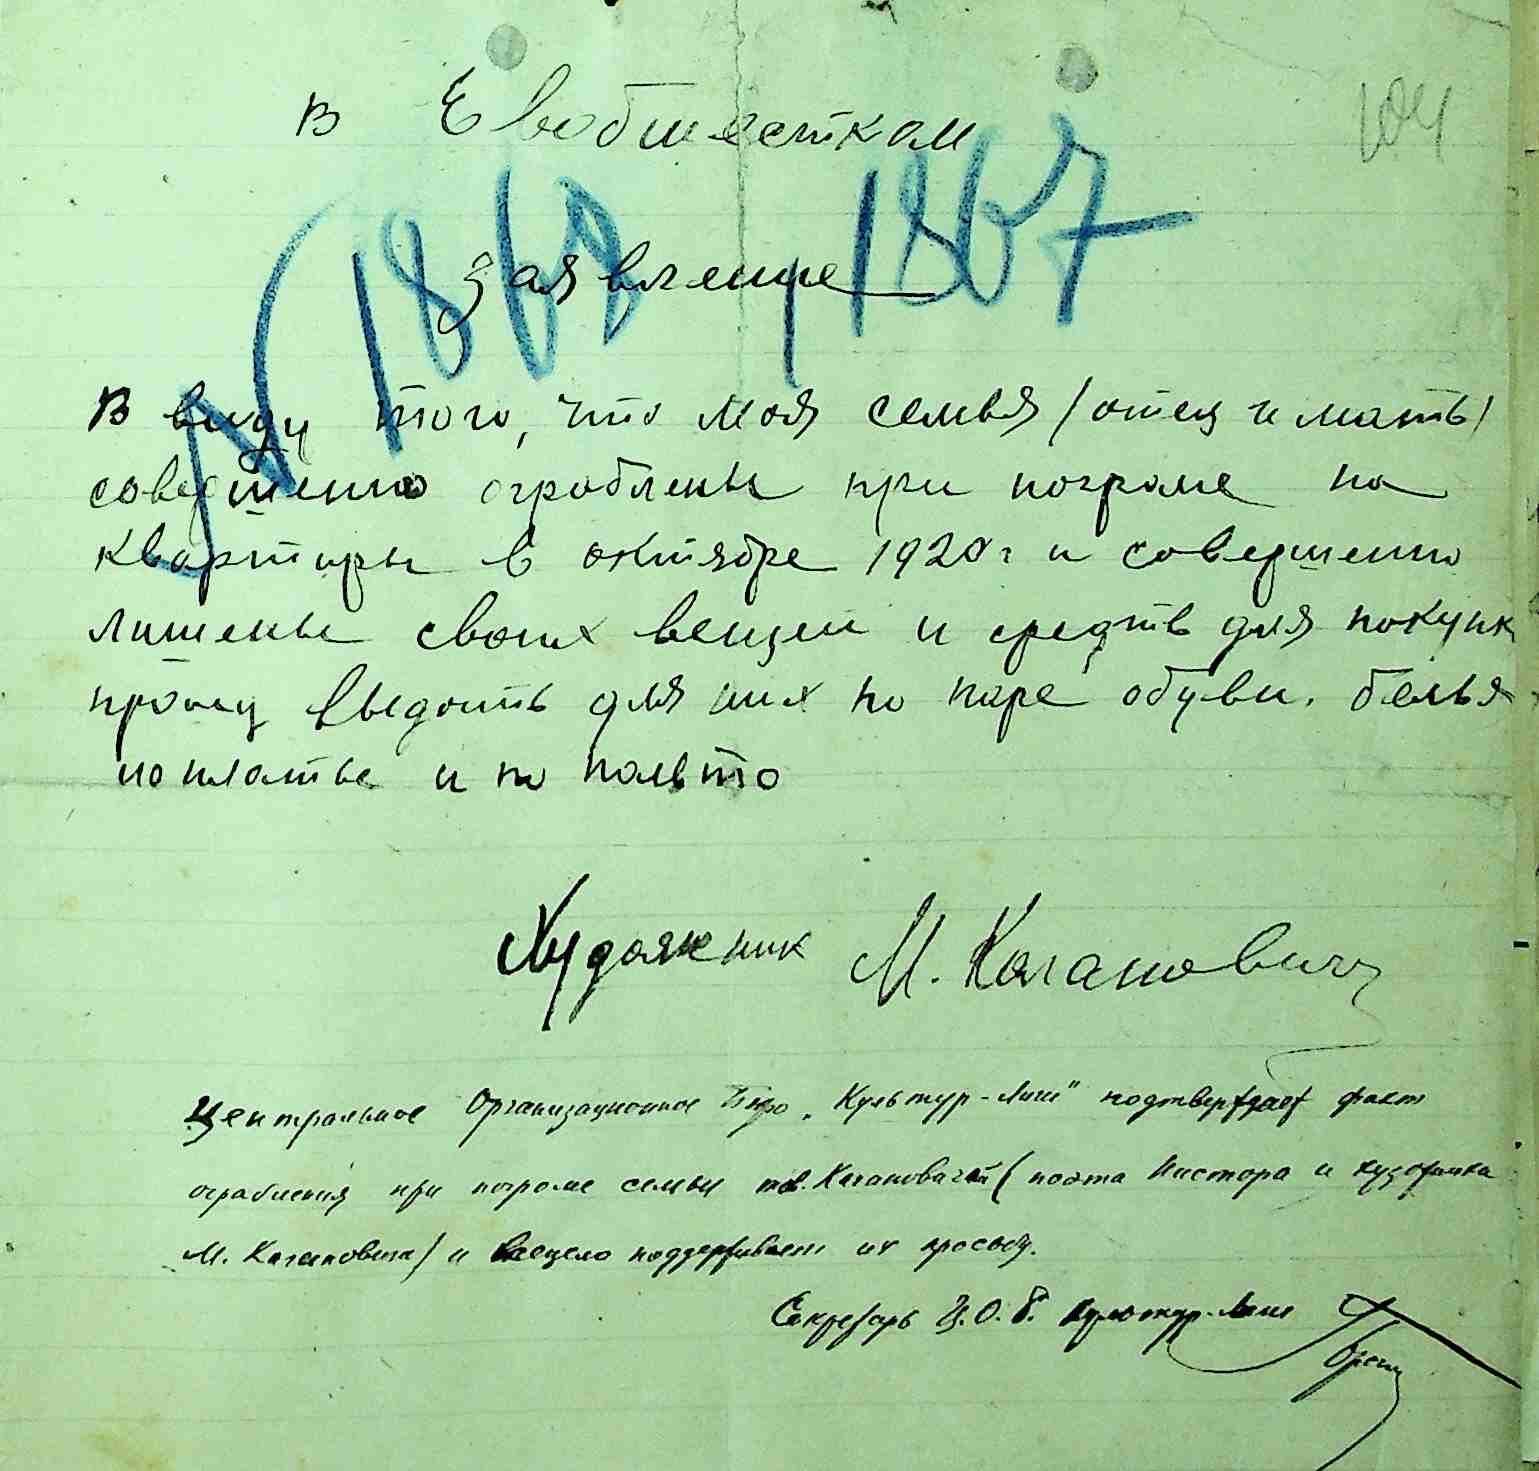 104
В Евобшестком
№ 1868, 1867
Заявление
В виду того, что моя семья / отец и мать /
совершенно ограблены при погроме на
квартиры в октябре 1920 г и совершенно
лишены своих вещей и средств для покупк
прошу выдать для них по паре обуви. белья
по платье и по пальто
Художник М. Каганович
Центральное Организационное Бюро „Культур-Лиги" подтверждает факт
ограбления при погроме семьи тов. Кагановичей (поэта Нистора и художника
М. Кагановича) и всецело поддерживает их просьбу.
Секретарь Ц.О.Б. Культур-Лиги